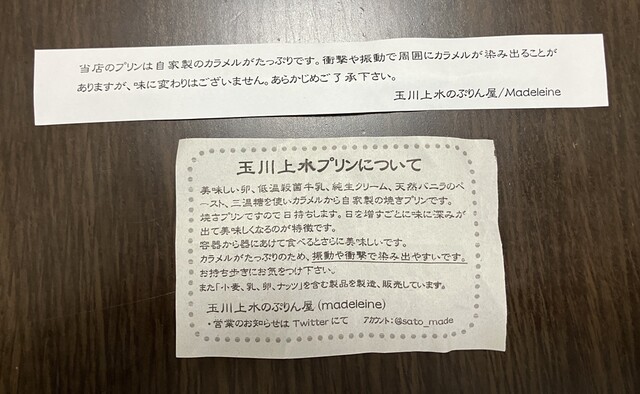 当店のプリンは自家製のカラメルがたっぷりです。衝撃や振動で周囲にカラメルが染み出ることが
ありますが、味に変わりはございません。あらかじめご了承下さい。
玉川上水のぷりん屋/Madeleine
玉川上水プリンについて
美味しい卵、低温殺菌牛乳、純生クリーム、天然バニラのペ
ースト、三温糖を使いカラメルから自家製の焼きプリンです。
焼きプリンですので日持ちします。日を増すごとに味に深みが
出て美味しくなるのが特徴です。
容器から器にあけて食べるとさらに美味しいです。
カラメルがたっぷりのため、振動や衝撃で染み出やすいです。
お持ち歩きにお気をつけ下さい。
また「小麦、乳、卵、ナッツ」を含む製品を製造、販売しています。
玉川上水のぷりん屋(madeleine)
・営業のお知らせは Twitterにて アカウント:@sato_made